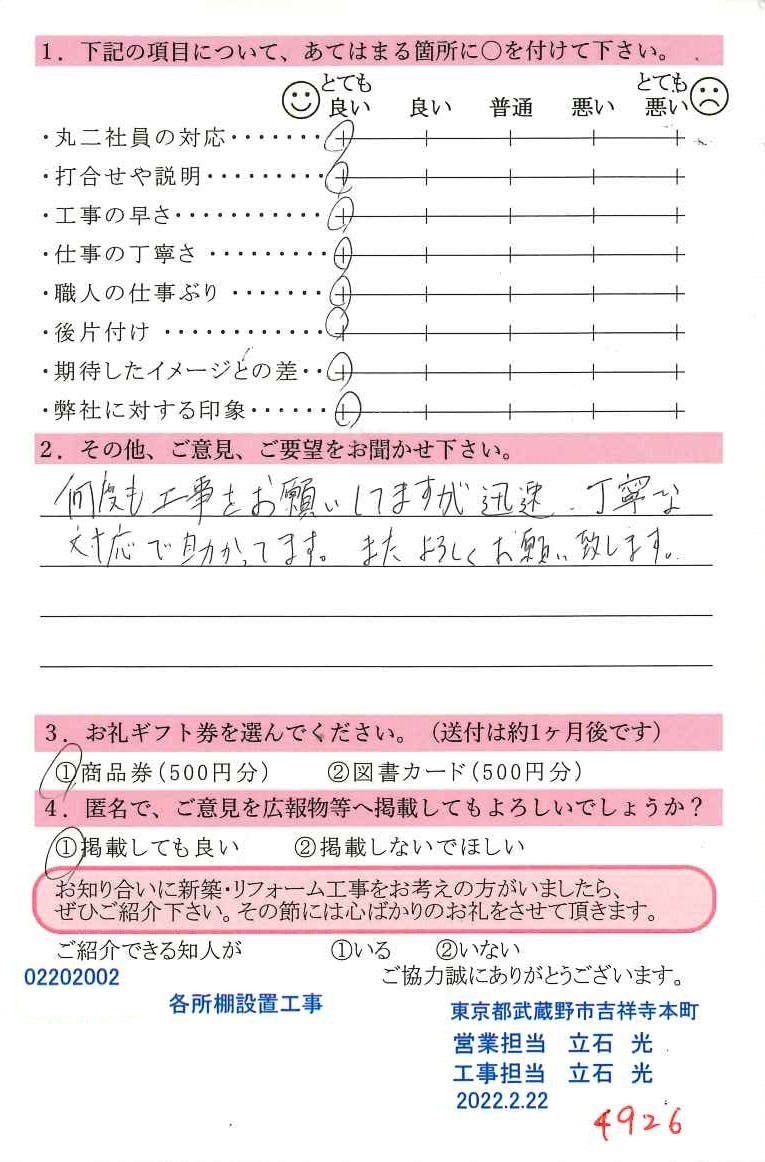 1．下記の項目について、あてはまる箇所に○を付けて下さい。
とても とても
良い 良い 普通 悪い 悪い
・丸二社員の対応・・・・・・・
・打合せや説明・・・・・・・・・
・工事の早さ・・・・・・・・・・・
・仕事の丁寧さ ・・・・・・・・・
・職人の仕事ぶり ・・・・・・・
・後片付け ・・・・・・・・・・・・
・期待したイメージとの差・・
・弊社に対する印象・・・・・・
2．その他、ご意見、ご要望をお聞かせ下さい。
何度も工事をお願いしてますが迅速、丁寧な
対応で助かってます。またよろしくお願い致します。
3．お礼ギフト券を選んでください。（送付は約1ヶ月後です）
①商品券（500円分） ②図書カード（500円分）
4．匿名で、ご意見を広報物等へ掲載してもよろしいでしょうか？
①掲載しても良い ②掲載しないでほしい
お知り合いに新築・リフォーム工事をお考えの方がいましたら、
ぜひご紹介下さい。その節には心ばかりのお礼をさせて頂きます。
ご紹介できる知人が ①いる ②いない
02202002 ご協力誠にありがとうございます。
各所棚設置工事 東京都武蔵野市吉祥寺本町
営業担当 立石 光
工事担当 立石 光
2022.2.22
4926